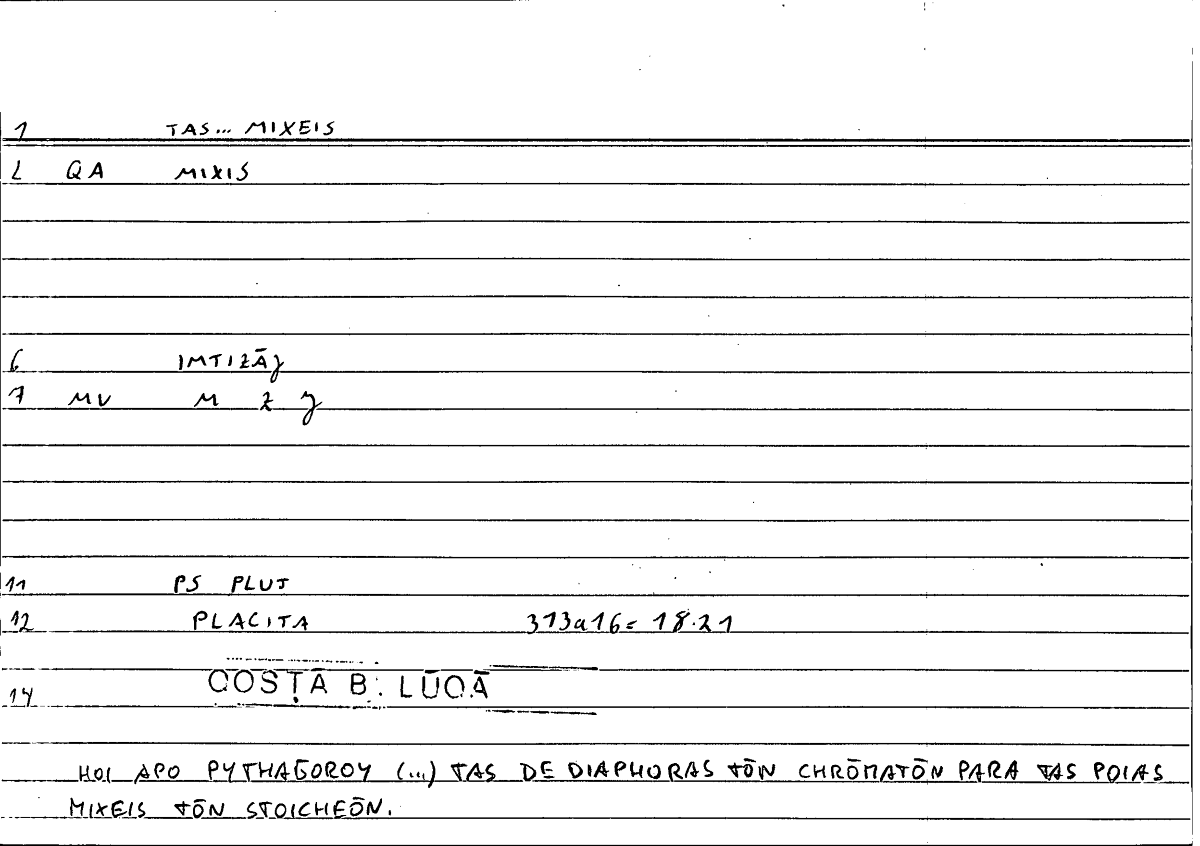 1 TAS... MIXEIS
2 QA MIXIS
6 IMTIZĀJ
7 MV M Z J
11 PS PLUT
12 PLACITA 313a16= 18.21
14 QOSṬĀ B. LŪQĀ
HOI APO PYTHAGOROY (...) TAS DE DIAPHORAS TŌN CHRŌMATŌN PARA TAS POIAS
MIXEIS TŌN STOICHEŌN.